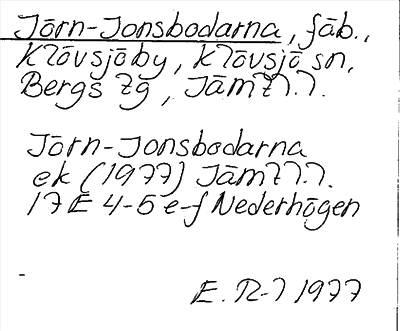 Jörn-Jonsbodarna, fäb.,
Klövsjöby, Klövsjö sn,
Bergs tg, Jämtl.
Jörn-Jonsbodarna
ek (1977) Jämtl.
17E 4-5 e-f Nederhögen
1977